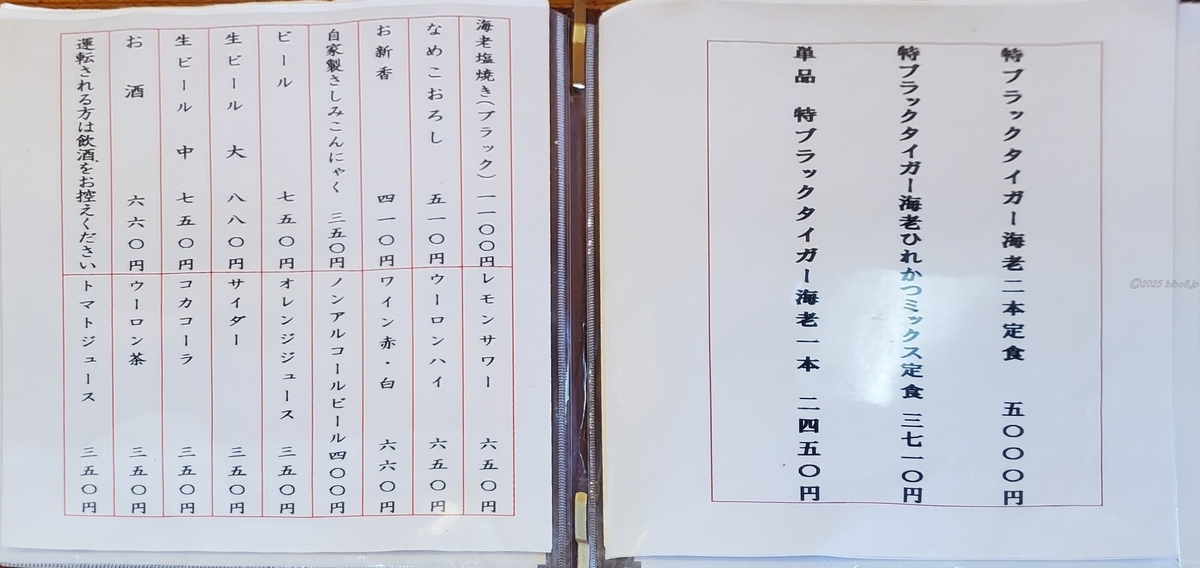 特ブラックタイガー海老二本定食 五〇〇〇円
特ブラックタイガー海老ひれかつミックス定食 三七一〇円
単品 特ブラックタイガー海老一本 二四五〇円
海老塩焼き(ブラック) 一一〇〇円
なめこおろし 五一〇円
お新香 四一〇円
自家製さしみこんにゃく 三五〇円
ビール 七五〇円
生ビール 大 八八〇円
生ビール 中 七五〇円
お酒 六六〇円
運転される方は飲酒をお控えください
レモンサワー 六五〇円
ウーロンハイ 六五〇円
ワイン赤・白 六六〇円
ノンアルコールビール 四〇〇円
オレンジジュース 三五〇円
サイダー 三五〇円
コカコーラ 三五〇円
ウーロン茶 三五〇円
トマトジュース 三五〇円
©2025 bibo6.jp